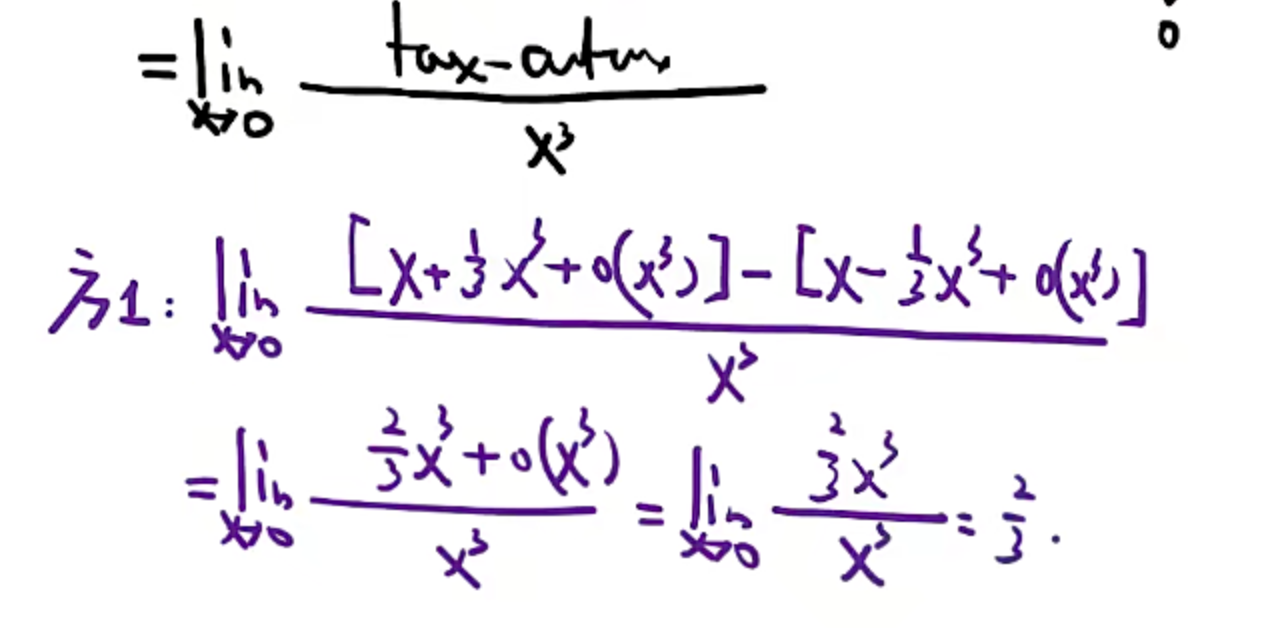 0
= lim x→0 (tanx - arctanx) / x³
方1: lim x→0 ([x + 1/3 x³ + o(x³)] - [x - 1/3 x³ + o(x³)]) / x³
= lim x→0 (2/3 x³ + o(x³)) / x³ = lim x→0 (2/3 x³) / x³ = 2/3.